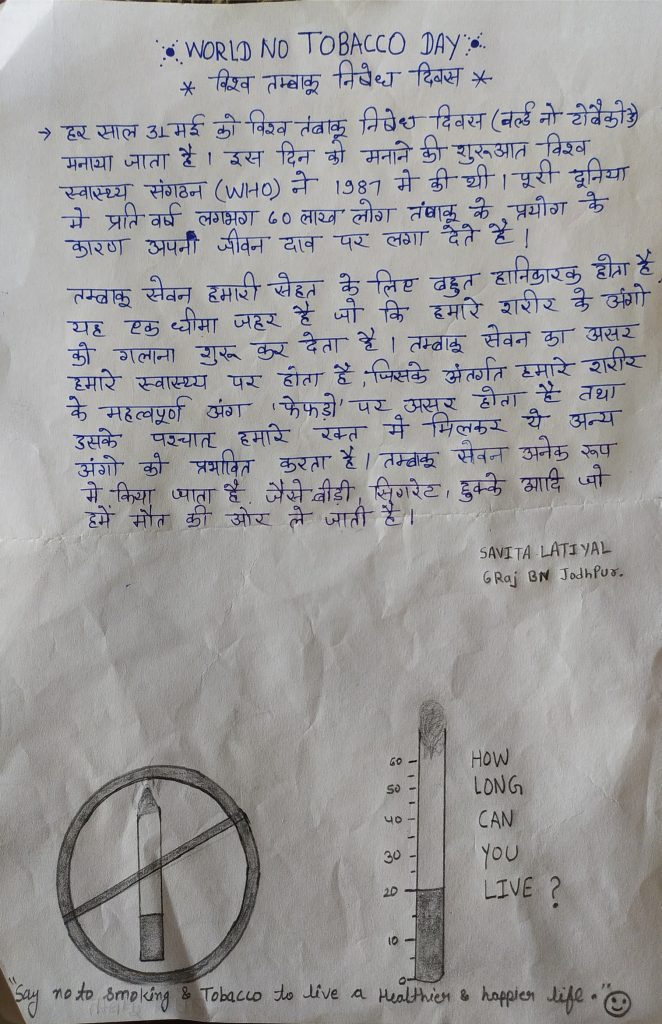 WORLD NO TOBACCO DAY
* विश्व तम्बाकू निषेध दिवस *
→ हर साल 31 मई को विश्व तंबाकू निषेध दिवस (वर्ल्ड नो टोबैको डे)
मनाया जाता है। इस दिन को मनाने की शुरूआत विश्व
स्वास्थ्य संगठन (WHO) ने 1987 मे की थी। पूरी दूनिया
मे प्रति वर्ष लगभग 60 लाख लोग तंबाकू के प्रयोग के
कारण अपनी जीवन दाव पर लगा देते है।
तम्बाकू सेवन हमारी सेहत के लिए बहुत हानिकारक होता है
यह एक धीमा जहर है जो कि हमारे शरीर के अंगो
को गलाना शुरू कर देता है। तम्बाकू सेवन का असर
हमारे स्वास्थ्य पर होता है, जिसके अंतर्गत हमारे शरीर
के महत्वपूर्ण अंग 'फेफड़ो' पर असर होता है तथा
उसके पश्चात हमारे रक्त मे मिलकर ये अन्य
अंगो को प्रभावित करता है। तम्बाकू सेवन अनेक रूप
मे किया जाता है. जैसे बीड़ी, सिगरेट, हुक्के आदि जो
हमें मौत की ओर ले जाती है।
SAVITA LATIYAL
6 Raj BN Jodhpur.
60
50
40
30
20
10
0
HOW
LONG
CAN
YOU
LIVE ?
"Say no to smoking & Tobacco to live a Healthier & happier life."